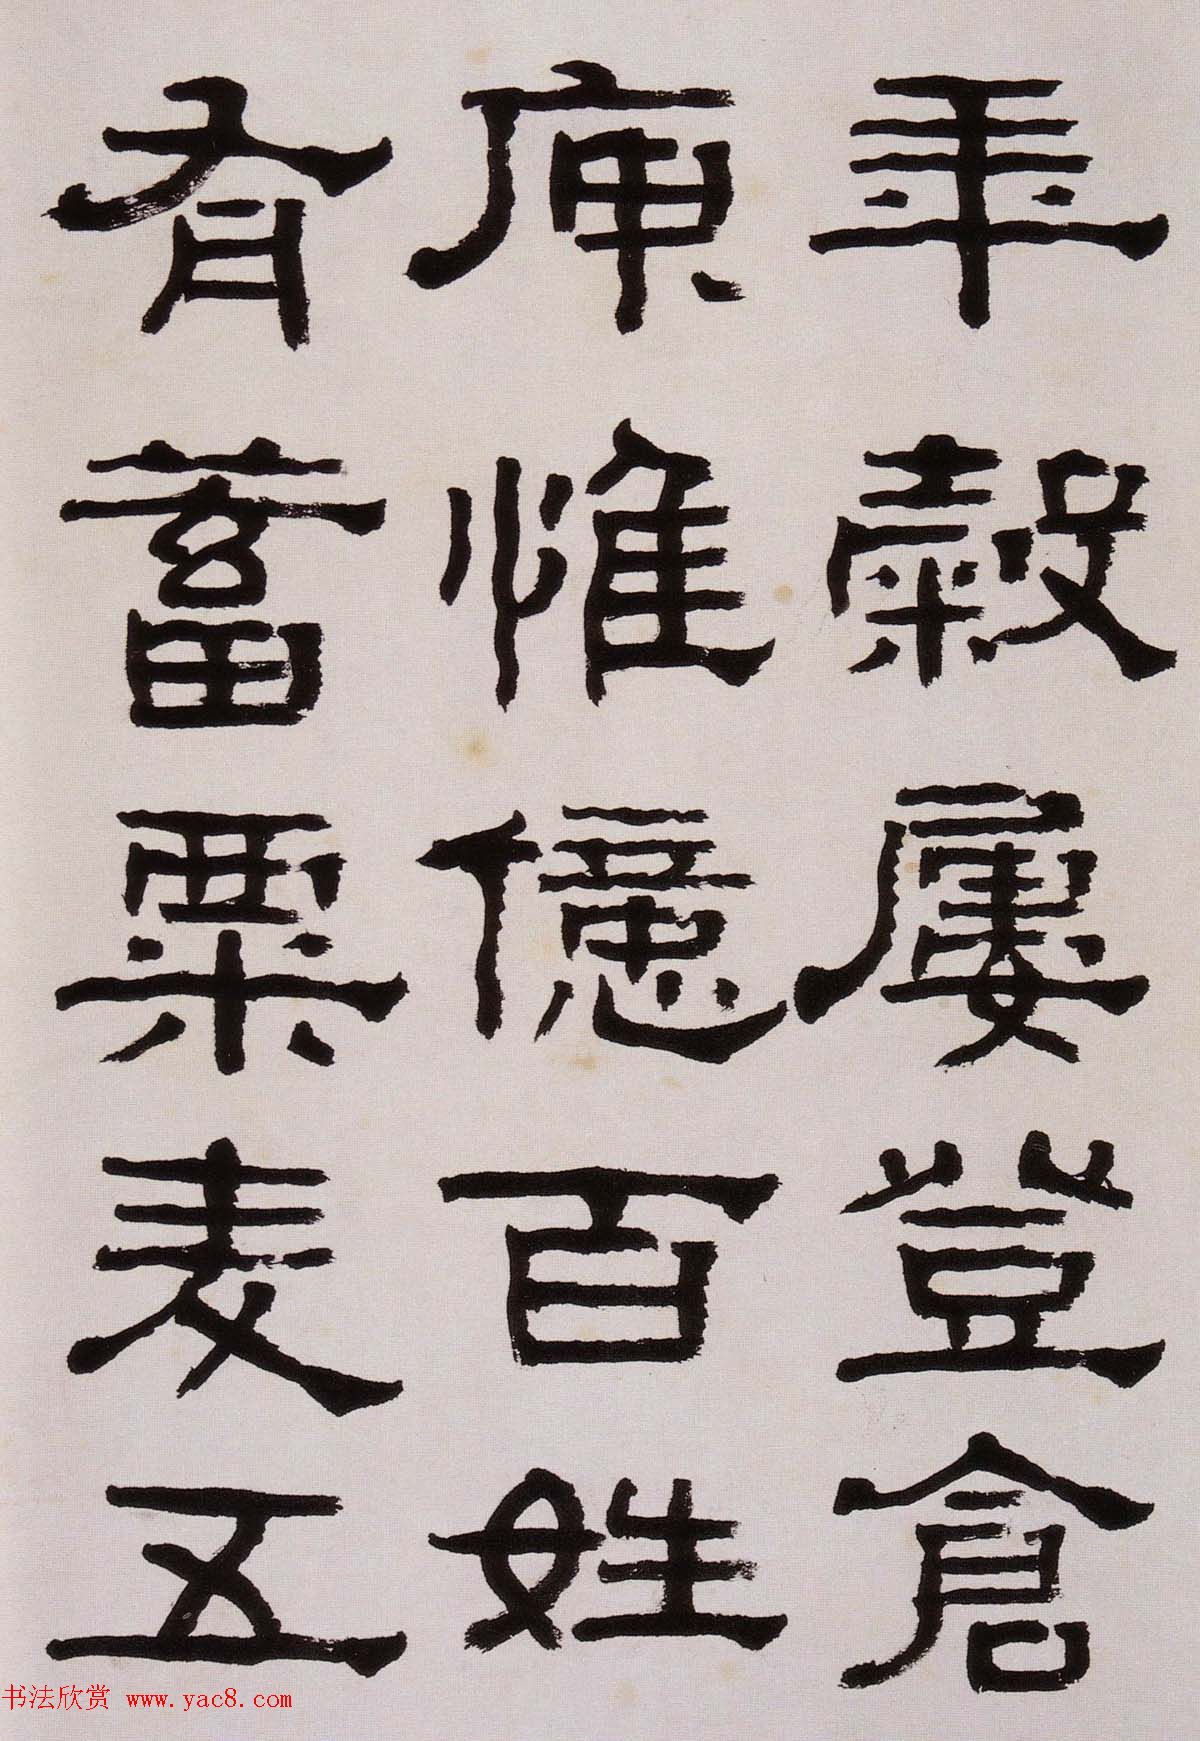 年穀屢登倉
庾惟億百姓
有蓄粟麦五
书法欣赏 www.yac8.com